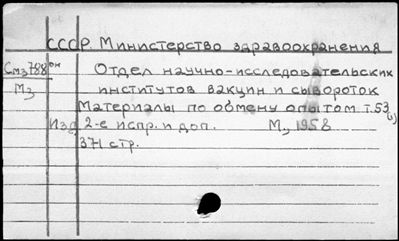 СССР. Министерство здравоохранения
Отдел научно-исследовательских
институтов вакцин и сывороток
Материалы по обмену опытом т.53
Изд 2-е испр. и доп. М., 1958
371 стр.